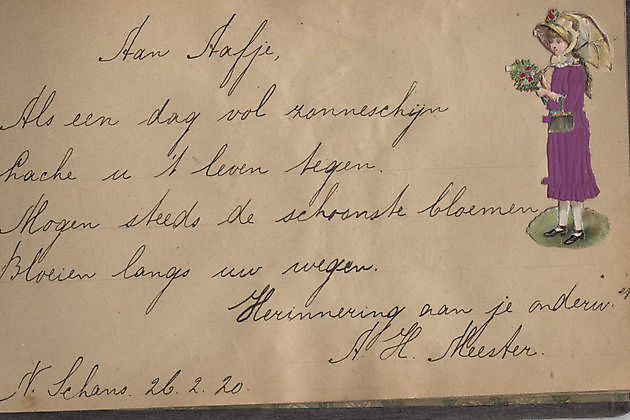 Aan Aafje,
Als een dag vol zonneschijn
Lache u 't leven tegen.
Mogen steeds de schoonste bloemen
Bloeien langs uw wegen.
Herinnering aan je onderw.
A H. Meester.
N. Schans. 26.2.20.